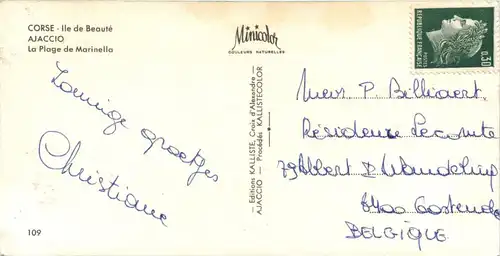 CORSE - Ile de Beauté
AJACCIO
La Plage de Marinella
Zonnige groetjes
Christiane
109
Minicolor
COULEURS NATURELLES
Editions KALLISTE, Croix d'Alexandre
AJACCIO - Procédés KALLISTECOLOR
REPUBLIQUE FRANÇAISE
POSTES
0,30
Mevr P. Billiaert
Résidence Lecomte
79 Albert I Wandeling
8400 Oostende
BELGIQUE